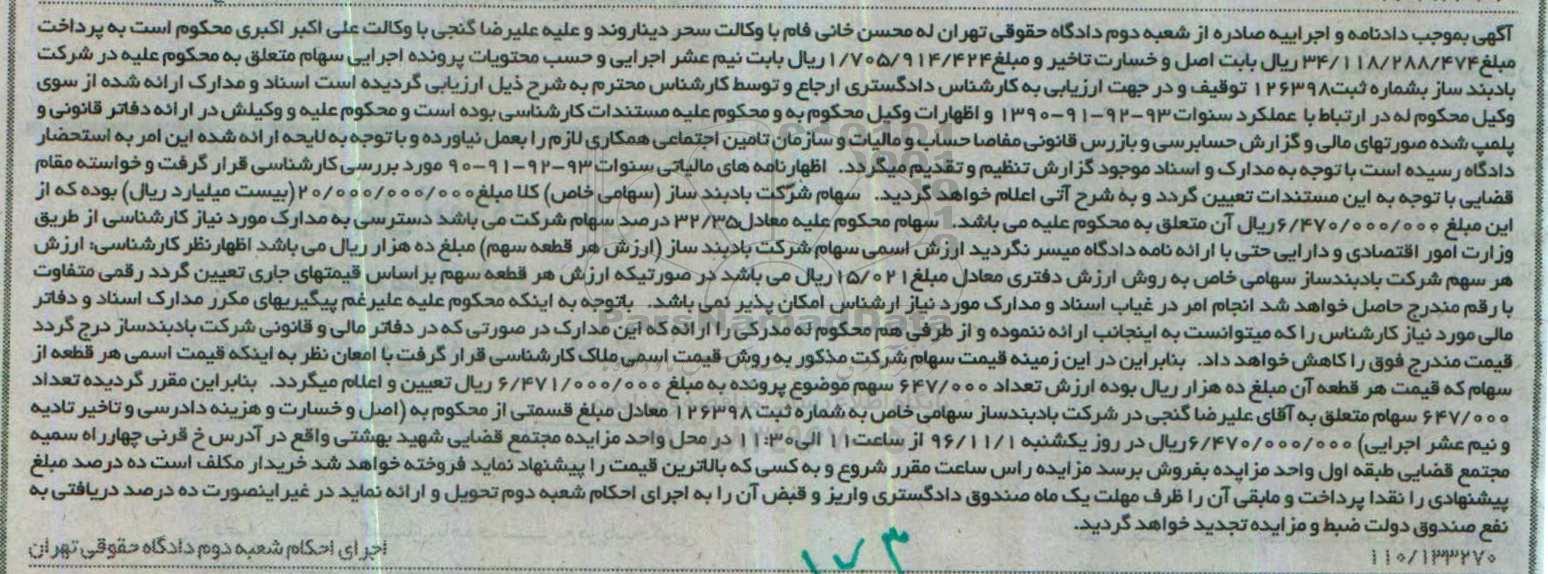 آگهی بموجب دادنامه و اجراییه صادره از شعبه دوم دادگاه حقوقی تهران له محسن خانی فام با وکالت سحر دیناروند و علیه علیرضا گنجی با وکالت علی اکبر اکبری محکوم است به پرداخت
مبلغ۳۴/۱۱۸/۲۸۸/۴۷۴ ریال بابت اصل و خسارت تاخیر و مبلغ۱/۷۰۵/۹۱۴/۴۲۴ریال بابت نیم عشر اجرایی و حسب محتویات پرونده اجرایی سهام متعلق به محکوم علیه در شرکت
بادبند ساز بشماره ثبت۱۲۶۳۹۸ توقیف و در جهت ارزیابی به کارشناس دادگستری ارجاع و توسط کارشناس محترم به شرح ذیل ارزیابی گردیده است اسناد و مدارک ارائه شده از سوی
وکیل محکوم له در ارتباط با عملکرد سنوات۹۳-۹۲-۹۱-۱۳۹۰ و اظهارات وکیل محکوم به و محکوم علیه مستندات کارشناسی بوده است و محکوم علیه و وکیلش در ارائه دفاتر قانونی و
پلمپ شده صورتهای مالی و گزارش حسابرسی و بازرس قانونی مفاصا حساب و مالیات و سازمان تامین اجتماعی همکاری لازم را بعمل نیاورده و با توجه به لایحه ارائه شده این امر به استحضار
دادگاه رسیده است با توجه به مدارک و اسناد موجود گزارش تنظیم و تقدیم میگردد. اظهارنامه های مالیاتی سنوات ۹۳-۹۲-۹۱-۹۰ مورد بررسی کارشناسی قرار گرفت و خواسته مقام
قضایی با توجه به این مستندات تعیین گردد و به شرح آتی اعلام خواهد گردید. سهام شرکت بادبند ساز (سهامی خاص) کلا مبلغ۲۰/۰۰۰/۰۰۰/۰۰۰(بیست میلیارد ریال) بوده که از
این مبلغ ۶/۴۷۰/۰۰۰/۰۰۰ریال آن متعلق به محکوم علیه می باشد. سهام محکوم علیه معادل۳۲/۳۵ درصد سهام شرکت می باشد دسترسی به مدارک مورد نیاز کارشناسی از طریق
وزارت امور اقتصادی و دارایی حتی با ارائه نامه دادگاه میسر نگردید ارزش اسمی سهام شرکت بادبند ساز (ارزش هر قطعه سهم) مبلغ ده هزار ریال می باشد اظهارنظر کارشناسی: ارزش
هر سهم شرکت بادبندساز سهامی خاص به روش ارزش دفتری معادل مبلغ۱۵/۰۲۱ریال می باشد در صورتیکه ارزش هر قطعه سهم براساس قیمتهای جاری تعیین گردد رقمی متفاوت
با رقم مندرج حاصل خواهد شد انجام امر در غیاب اسناد و مدارک مورد نیاز ارشناس امکان پذیر نمی باشد. باتوجه به اینکه محکوم علیه علیرغم پیگیریهای مکرر مدارک اسناد و دفاتر
مالی مورد نیاز کارشناس را که میتوانست به اینجانب ارائه ننموده و از طرفی هم محکوم له مدرکی را ارائه که این مدارک در صورتی که در دفاتر مالی و قانونی شرکت بادبندساز درج گردد
قیمت مندرج فوق را کاهش خواهد داد. بنابراین در این زمینه قیمت سهام شرکت مذکور به روش قیمت اسمی ملاک کارشناسی قرار گرفت با امعان نظر به اینکه قیمت اسمی هر قطعه از
سهام که قیمت هر قطعه آن مبلغ ده هزار ریال بوده ارزش تعداد ۶۴۷/۰۰۰ سهم موضوع پرونده به مبلغ ۶/۴۷۱/۰۰۰/۰۰۰ ریال تعیین و اعلام میگردد. بنابراین مقرر گردیده تعداد
۶۴۷/۰۰۰ سهام متعلق به آقای علیرضا گنجی در شرکت بادبندساز سهامی خاص به شماره ثبت ۱۲۶۳۹۸ معادل مبلغ قسمتی از محکوم به (اصل و خسارت و هزینه دادرسی و تاخیر تادیه
و نیم عشر اجرایی) ۶/۴۷۰/۰۰۰/۰۰۰ریال در روز یکشنبه ۹۶/۱۱/۱ از ساعت۱۱ الی۱۱:۳۰ در محل واحد مزایده مجتمع قضایی شهید بهشتی واقع در آدرس خ قرنی چهارراه سمیه
مجتمع قضایی طبقه اول واحد مزایده بفروش برسد مزایده راس ساعت مقرر شروع و به کسی که بالاترین قیمت را پیشنهاد نماید فروخته خواهد شد خریدار مکلف است ده درصد مبلغ
پیشنهادی را نقدا پرداخت و مابقی آن را ظرف مهلت یک ماه صندوق دادگستری واریز و قبض آن را به اجرای احکام شعبه دوم تحویل و ارائه نماید در غیر اینصورت ده درصد دریافتی به
نفع صندوق دولت ضبط و مزایده تجدید خواهد گردید.
اجرای احکام شعبه دوم دادگاه حقوقی تهران
۱۱۰/۱۳۳۲۷۰
۱۷۳
ParsNamadData